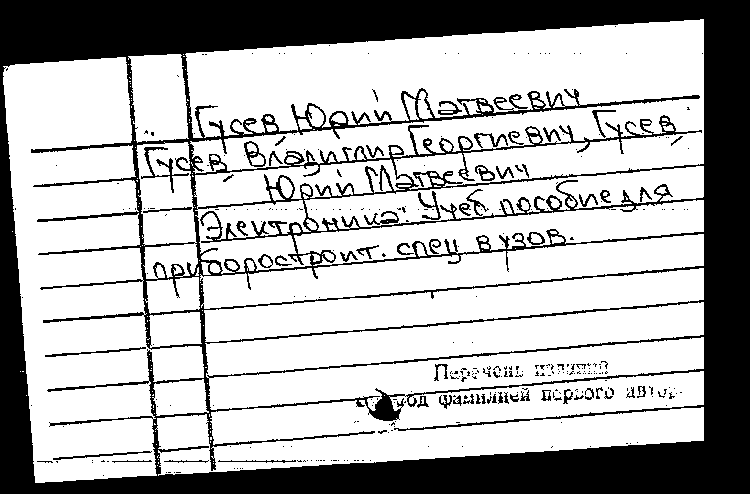 Гусев, Юрий Матвеевич
Гусев, Владимир Георгиевич, Гусев,
Юрий Матвеевич
Электроника: Учеб. пособие для
приборостроит. спец вузов.
Перечень изданий
под фамилией первого автор